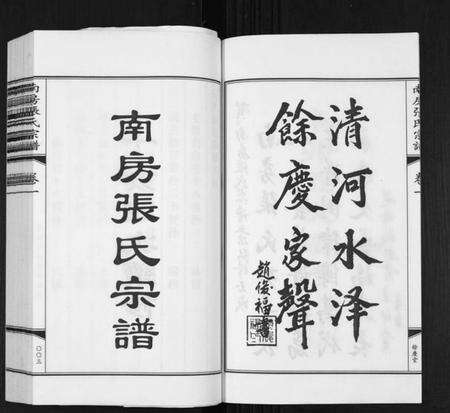 清河水泽
餘慶家聲
趙俊福書
南房張氏宗譜
南房張氏宗譜
卷一
餘慶堂
南房張氏宗譜
卷一
〇〇三